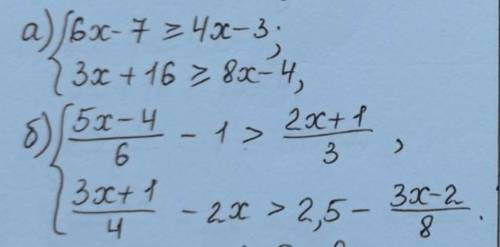 а) { 6x - 7 ≥ 4x - 3;
3x + 16 ≥ 8x - 4,
б) { (5x - 4)/6 - 1 > (2x + 1)/3,
(3x + 1)/4 - 2x > 2,5 - (3x - 2)/8.